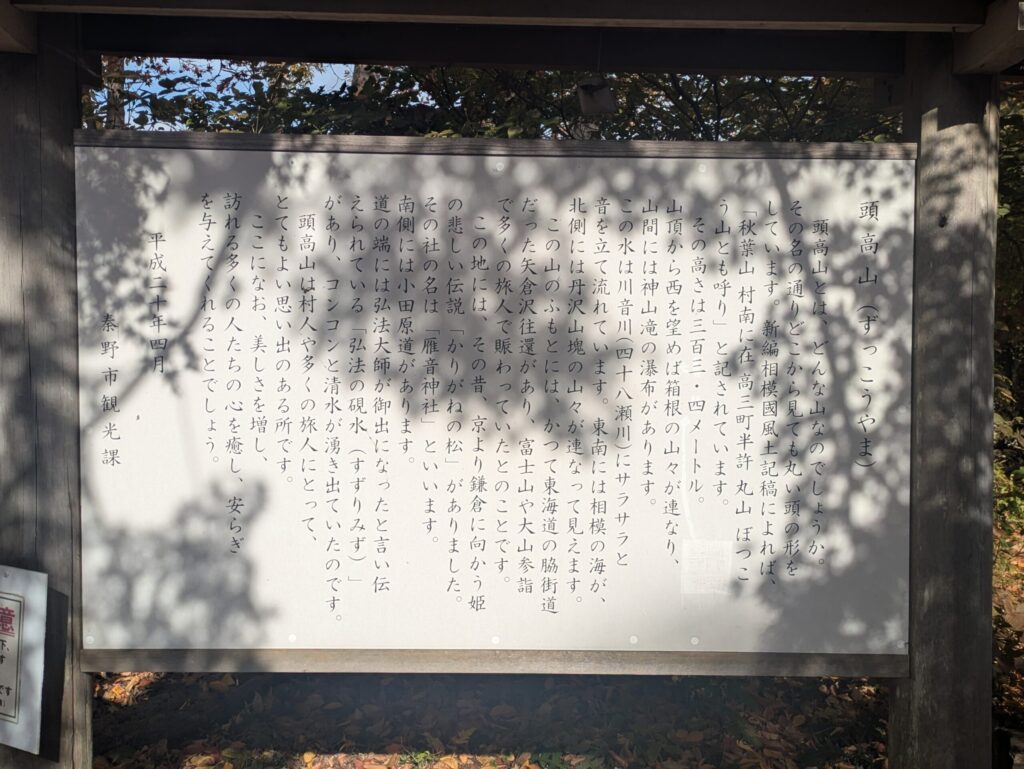 頭高山（ずっこうやま）
頭高山とは、どんな山なのでしょうか。
その名の通りどこから見ても丸い頭の形を
しています。新編相模國風土記稿によれば、
「秋葉山 村南に在 高三町半許 丸山 ぼつこ
う山とも呼り」と記されています。
その高さは三百三・四メートル。
山頂から西を望めば箱根の山々が連なり、
山間には神山滝の瀑布があります。
この水は川音川（四十八瀬川）にサラサラと
音を立て流れています。東南には相模の海が、
北側には丹沢山塊の山々が連なって見えます。
この山のふもとには、かつて東海道の脇街道
だった矢倉沢往還があり、富士山や大山参詣
で多くの旅人で賑わっていたとのことです。
この地には、その昔、京より鎌倉に向かう姫
の悲しい伝説「かりがねの松」がありました。
その社の名は「雁音神社」といいます。
南側には小田原道があります。
道の端には弘法大師が御出になったと言い伝
えられている「弘法の硯水（すずりみず）」
があり、コンコンと清水が湧き出ていたのです。
頭高山は村人や多くの旅人にとって、
とてもよい思い出のある所です。
ここになお、美しさを増し、
訪れる多くの人たちの心を癒し、安らぎ
を与えてくれることでしょう。
平成二十年四月
秦野市観光課